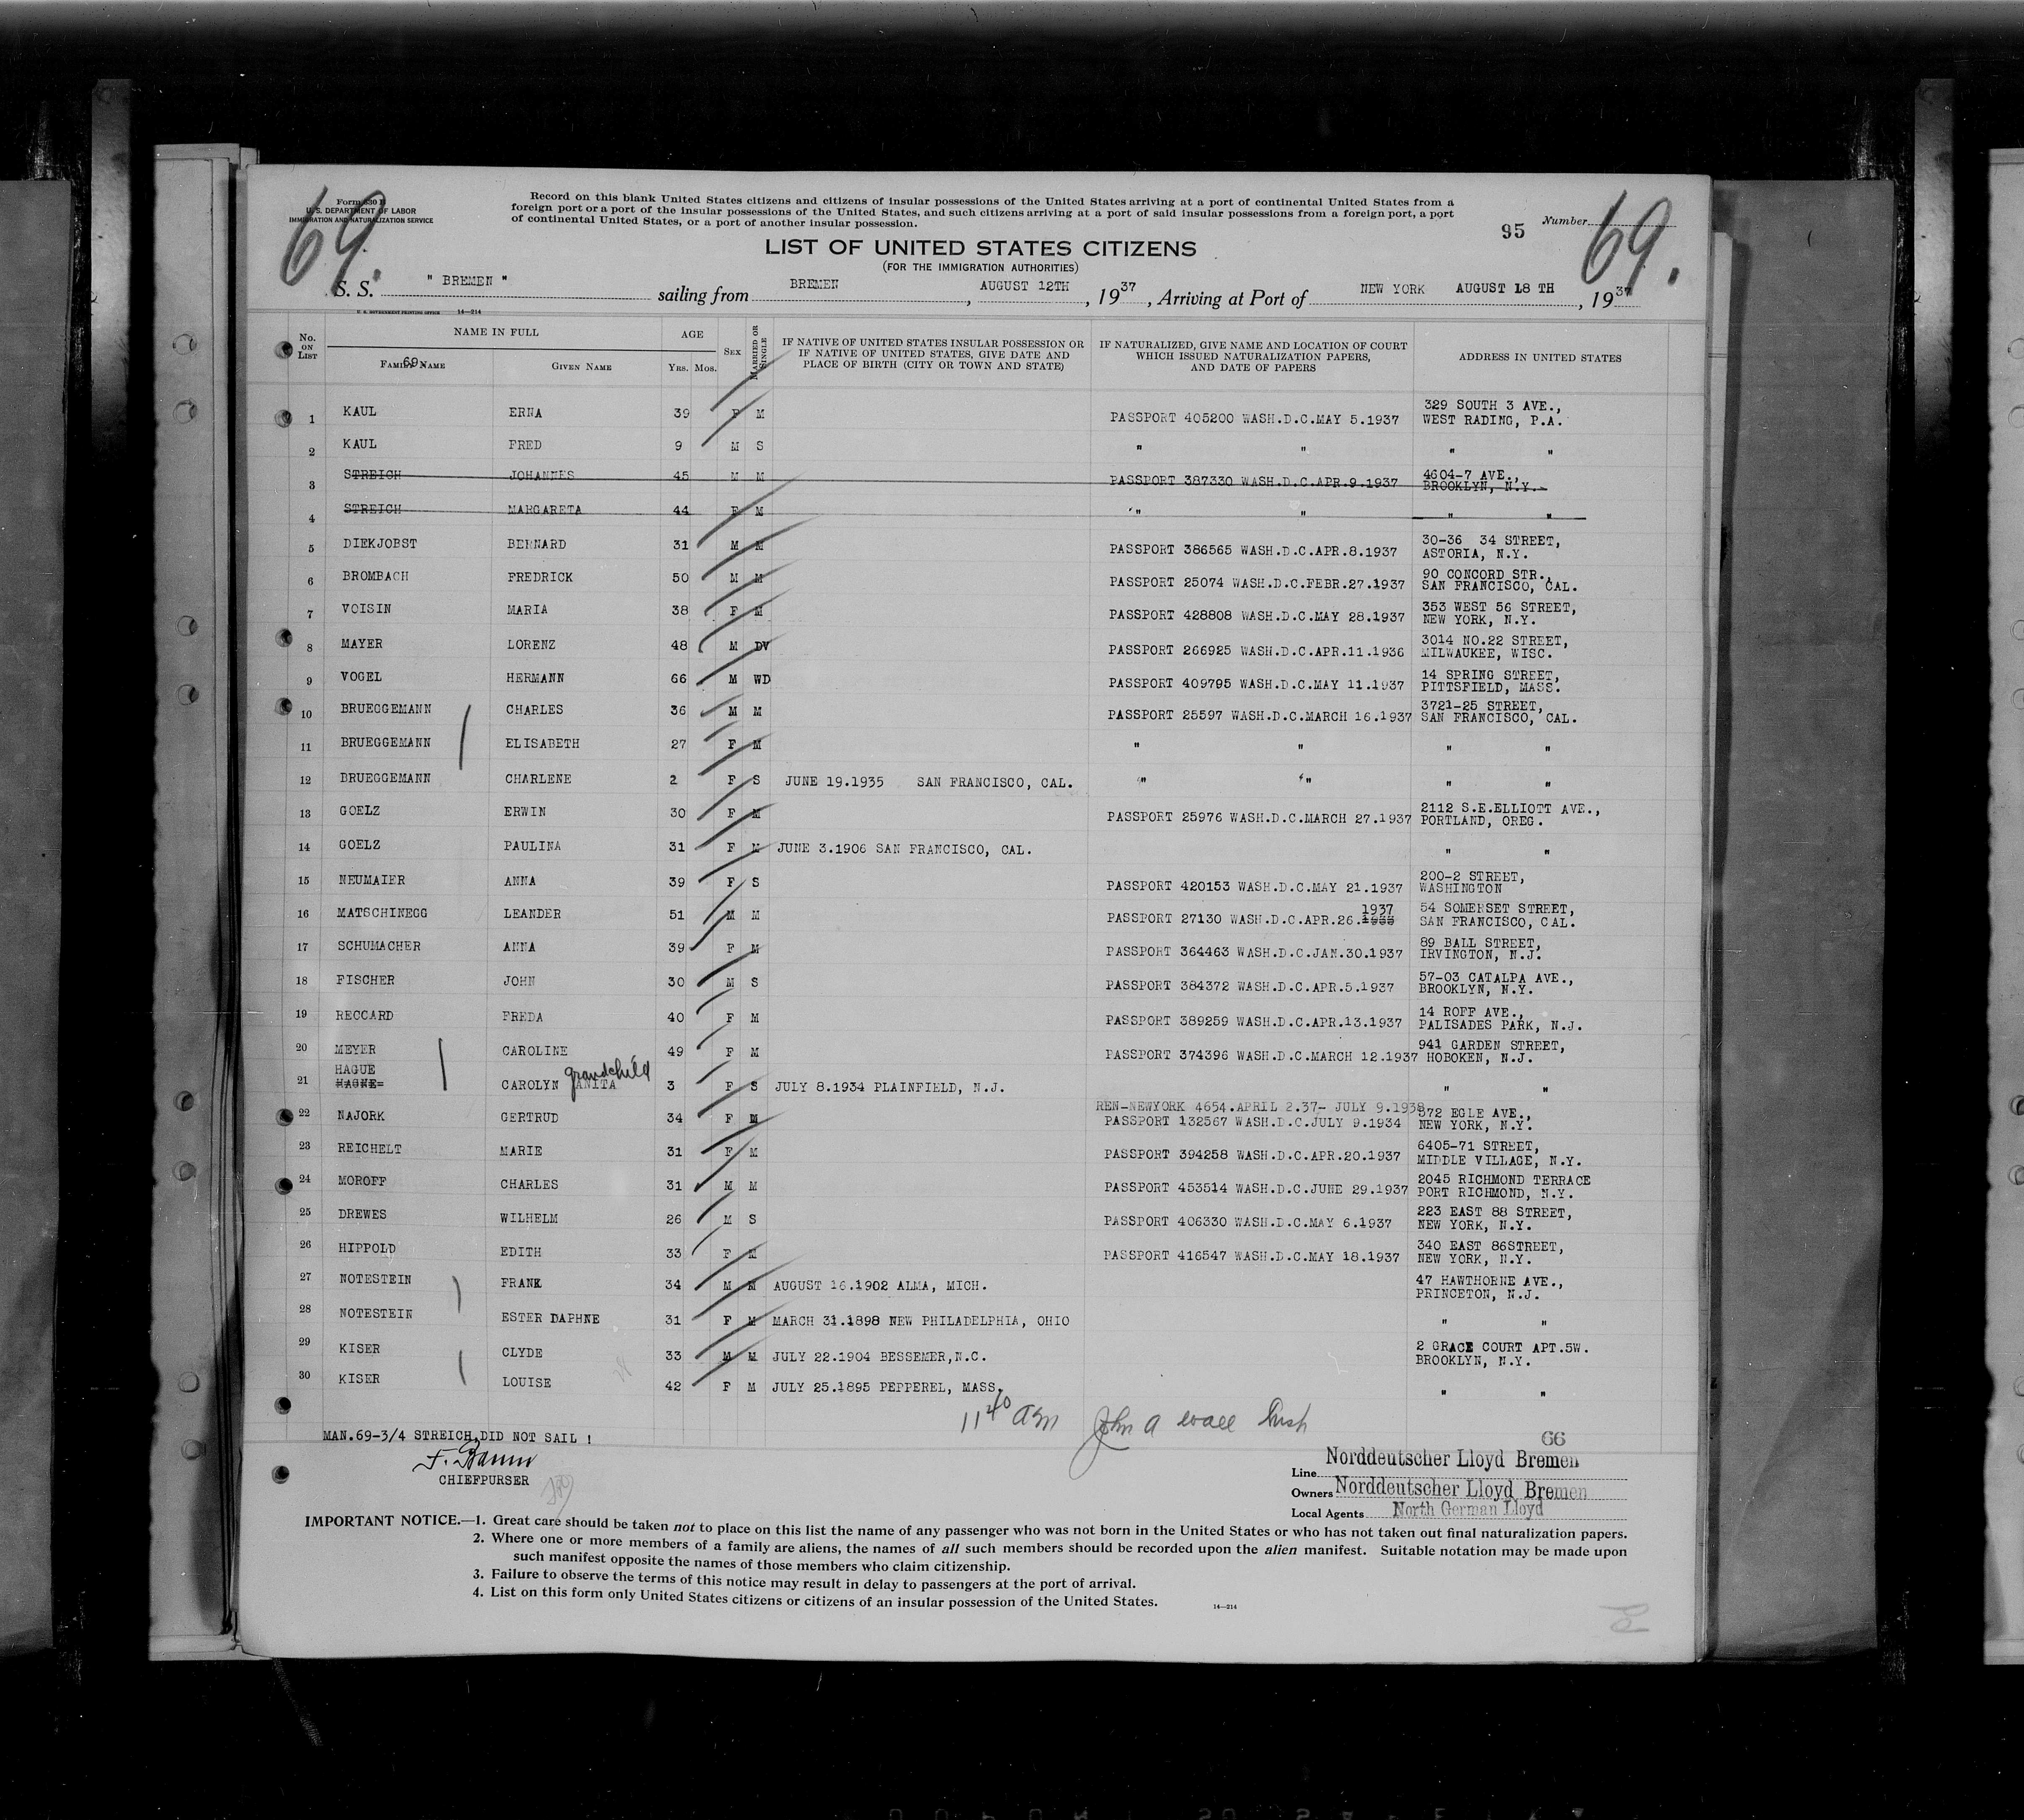 69.
Form 630 D
U. S. DEPARTMENT OF LABOR
IMMIGRATION AND NATURALIZATION SERVICE
Record on this blank United States citizens and citizens of insular possessions of the United States arriving at a port of continental United States from a
foreign port or a port of the insular possessions of the United States, and such citizens arriving at a port of said insular possessions from a foreign port, a port
of continental United States, or a port of another insular possession.
95 Number 69.
LIST OF UNITED STATES CITIZENS
(FOR THE IMMIGRATION AUTHORITIES)
S. S. " BREMEN " sailing from BREMEN, AUGUST 12TH, 1937, Arriving at Port of NEW YORK AUGUST 18 TH, 1937
U. S. GOVERNMENT PRINTING OFFICE 14—214
No. ON LIST NAME IN FULL AGE SEX MARRIED OR SINGLE IF NATIVE OF UNITED STATES INSULAR POSSESSION OR IF NATIVE OF UNITED STATES, GIVE DATE AND PLACE OF BIRTH (CITY OR TOWN AND STATE) IF NATURALIZED, GIVE NAME AND LOCATION OF COURT WHICH ISSUED NATURALIZATION PAPERS, AND DATE OF PAPERS ADDRESS IN UNITED STATES
FAMILY NAME 69. GIVEN NAME YRS. MOS.
1 KAUL ERNA 39 F M PASSPORT 405200 WASH.D.C.MAY 5.1937 329 SOUTH 3 AVE., WEST RADING, P.A.
2 KAUL FRED 9 M S " " " "
3 STREICH JOHANNES 45 M M PASSPORT 387330 WASH.D.C.APR.9.1937 4604-7 AVE., BROOKLYN, N.Y.
4 STREICH MARGARETA 44 F M " " " "
5 DIEKJOBST BERNARD 31 M M PASSPORT 386565 WASH.D.C.APR.8.1937 30-36 34 STREET, ASTORIA, N.Y.
6 BROMBACH FREDRICK 50 M M PASSPORT 25074 WASH.D.C.FEBR.27.1937 90 CONCORD STR., SAN FRANCISCO, CAL.
7 VOISIN MARIA 38 F M PASSPORT 428808 WASH.D.C.MAY 28.1937 353 WEST 56 STREET, NEW YORK, N.Y.
8 MAYER LORENZ 48 M DV PASSPORT 266925 WASH.D.C.APR.11.1936 3014 NO.22 STREET, MILWAUKEE, WISC.
9 VOGEL HERMANN 66 M WD PASSPORT 409795 WASH.D.C.MAY 11.1937 14 SPRING STREET, PITTSFIELD, MASS.
10 BRUEGGEMANN CHARLES 36 M M PASSPORT 25597 WASH.D.C.MARCH 16.1937 3721-25 STREET, SAN FRANCISCO, CAL.
11 BRUEGGEMANN ELISABETH 27 F M " " " "
12 BRUEGGEMANN CHARLENE 2 F S JUNE 19.1935 SAN FRANCISCO, CAL. " " " "
13 GOELZ ERWIN 30 F M PASSPORT 25976 WASH.D.C.MARCH 27.1937 2112 S.E.ELLIOTT AVE., PORTLAND, OREG.
14 GOELZ PAULINA 31 F M JUNE 3.1906 SAN FRANCISCO, CAL. " "
15 NEUMAIER ANNA 39 F S PASSPORT 420153 WASH.D.C.MAY 21.1937 200-2 STREET, WASHINGTON
16 MATSCHINEGG LEANDER 51 M M PASSPORT 27130 WASH.D.C.APR.26. 1937 54 SOMERSET STREET, SAN FRANCISCO, CAL.
17 SCHUMACHER ANNA 39 F M PASSPORT 364463 WASH.D.C.JAN.30.1937 89 BALL STREET, IRVINGTON, N.J.
18 FISCHER JOHN 30 M S PASSPORT 384372 WASH.D.C.APR.5.1937 57-03 CATALPA AVE., BROOKLYN, N.Y.
19 RECCARD FREDA 40 F M PASSPORT 389259 WASH.D.C.APR.13.1937 14 ROFF AVE., PALISADES PARK, N.J.
20 MEYER CAROLINE 49 F M PASSPORT 374396 WASH.D.C.MARCH 12.1937 941 GARDEN STREET, HOBOKEN, N.J.
21 HAGUE HAGNE CAROLYN ANITA grandchild 3 F S JULY 8.1934 PLAINFIELD, N.J. " "
22 NAJORK GERTRUD 34 F M REN-NEWYORK 4654.APRIL 2.37- JULY 9.1938 PASSPORT 132567 WASH.D.C.JULY 9.1934 872 EGLE AVE., NEW YORK, N.Y.
23 REICHELT MARIE 31 F M PASSPORT 394258 WASH.D.C.APR.20.1937 6405-71 STREET, MIDDLE VILLAGE, N.Y.
24 MOROFF CHARLES 31 M M PASSPORT 453514 WASH.D.C.JUNE 29.1937 2045 RICHMOND TERRACE PORT RICHMOND, N.Y.
25 DREWES WILHELM 26 M S PASSPORT 406330 WASH.D.C.MAY 6.1937 223 EAST 88 STREET, NEW YORK, N.Y.
26 HIPPOLD EDITH 33 F M PASSPORT 416547 WASH.D.C.MAY 18.1937 340 EAST 86STREET, NEW YORK, N.Y.
27 NOTESTEIN FRANK 34 M M AUGUST 16.1902 ALMA, MICH. 47 HAWTHORNE AVE., PRINCETON, N.J.
28 NOTESTEIN ESTER DAPHNE 31 F M MARCH 31.1898 NEW PHILADELPHIA, OHIO " "
29 KISER CLYDE 33 M M JULY 22.1904 BESSEMER,N.C. 2 GRACE COURT APT.5W. BROOKLYN, N.Y.
30 KISER LOUISE 42 F M JULY 25.1895 PEPPEREL, MASS. " "
11 40 am John A Wall Insp
MAN.69-3/4 STREICH,DID NOT SAIL !
CHIEFPURSER
66
Line Norddeutscher Lloyd Bremen
Owners Norddeutscher Lloyd Bremen
Local Agents North German Lloyd
IMPORTANT NOTICE.—1. Great care should be taken not to place on this list the name of any passenger who was not born in the United States or who has not taken out final naturalization papers.
2. Where one or more members of a family are aliens, the names of all such members should be recorded upon the alien manifest. Suitable notation may be made upon
such manifest opposite the names of those members who claim citizenship.
3. Failure to observe the terms of this notice may result in delay to passengers at the port of arrival.
4. List on this form only United States citizens or citizens of an insular possession of the United States.
14—214